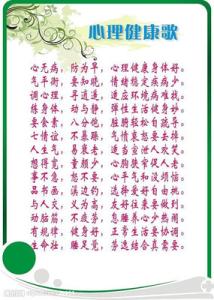 心理健康歌
心无病，防为早，心理健康身体好。
气平衡，要知晓，情绪稳定疾病少。
调心理，寻逍遥，适应环境难找。
练身体，动与静，弹性生活健身妙。
要食素，八分饱，脏腑轻松自疏导。
七情谊，不暴躁，气愤哀愁要去掉。
人生气，易衰老，适当宣泄人欢笑。
想得宽，童颜少，心胸狭窄促人老。
事不急，怒不要，心平气和没烦恼。
品书画，溪边钓，选择爱好自由挑。
与人交，义为高，友好往来要做到。
动脑筋，不疲劳，息睡养心少热闹。
有规律，健身好，正常生活要协调。
生命社，睡足觉，劳逸结合真需要。